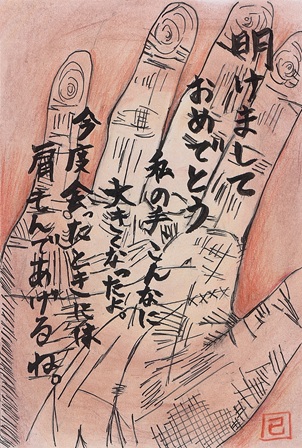 明けまして
おめでとう
私の手、こんなに
大きくなったよ。
今度会ったときには
肩もんであげるね。
己